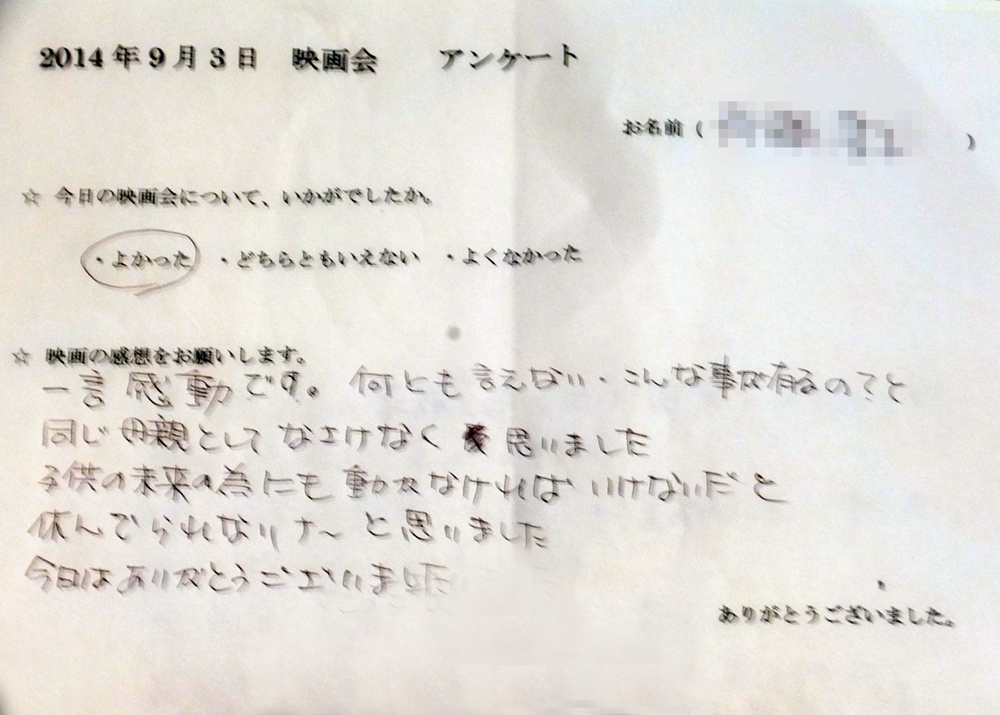 2014年9月3日 映画会 アンケート
お名前( )
☆ 今日の映画会について、いかがでしたか。
・よかった ・どちらともいえない ・よくなかった
☆ 映画の感想をお願いします。
一言 感動です。何とも言えない・こんな事が有るの?と
同じ母親としてなさけなく 思いました
子供の未来の為にも動かなければいけないだと
休んでられないナ〜と思いました
今日はありがとうございました
ありがとうございました。